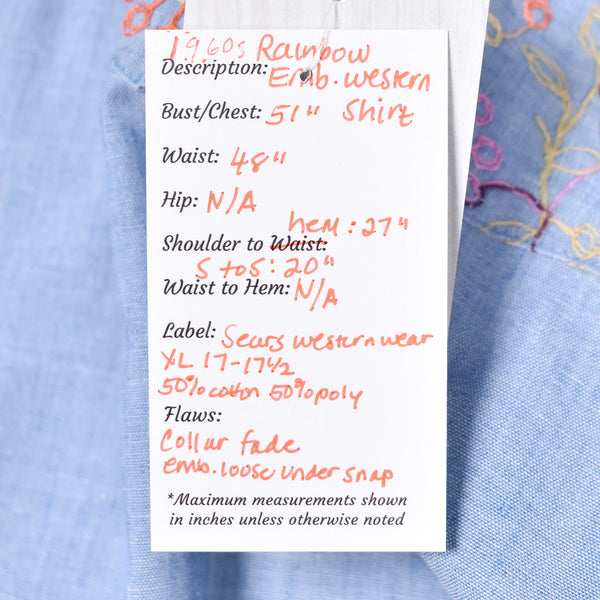 1960s Rainbow
Description: Emb. western
Bust/Chest: 51" Shirt
Waist: 48"
Hip: N/A
hem: 27"
Shoulder to Waist:
S to S: 20"
Waist to Hem: N/A
Label: Sears western wear
XL 17-17 1/2
50% cotton 50% poly
Flaws:
Collar fade
emb. loose under snap
*Maximum measurements shown
in inches unless otherwise noted